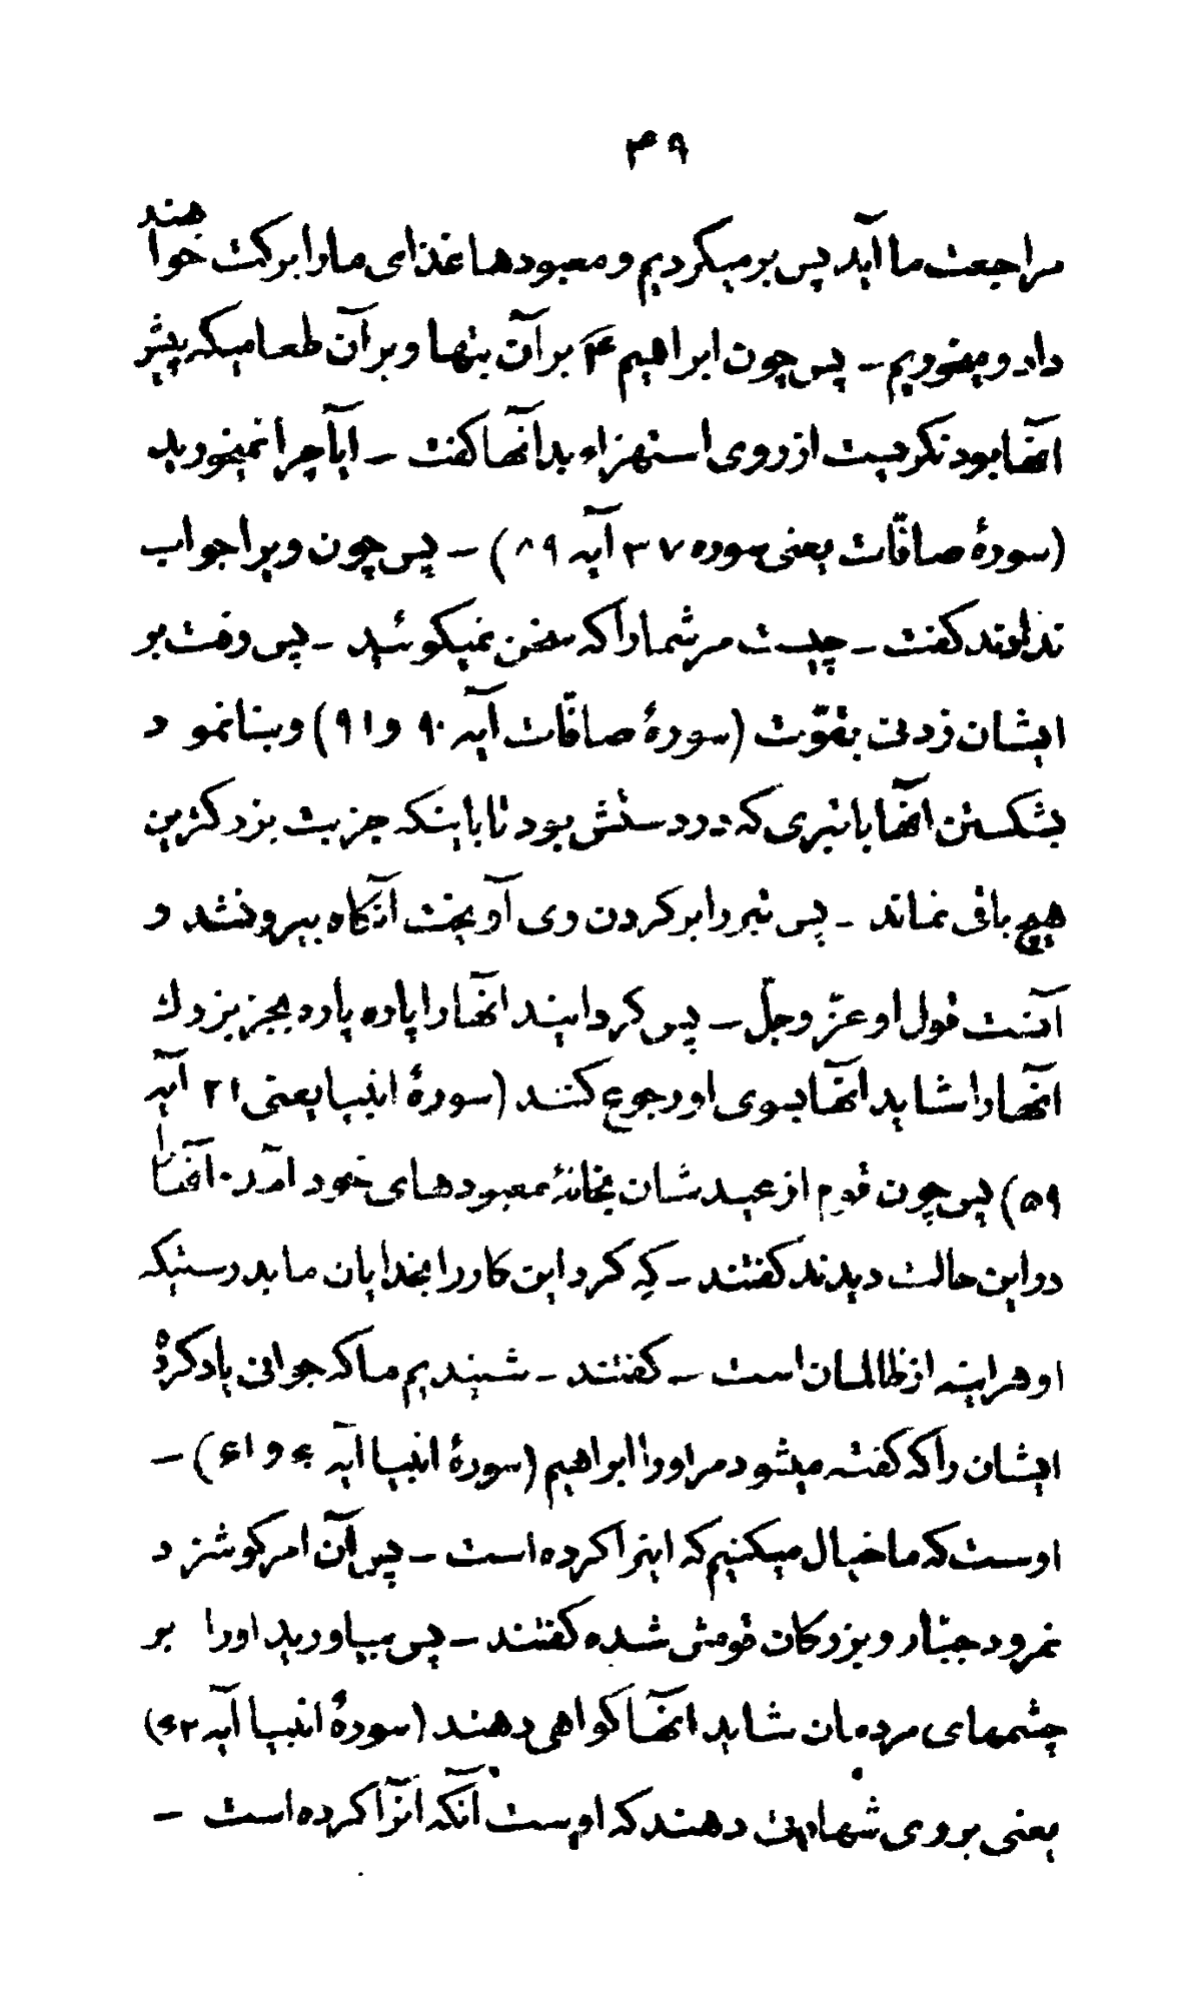 ۴۹
مراجعت ما آید پس برمیگردیم و معبودها غذای مارا برکت خواهند
داد و میخوریم – پس چون ابراهیم ۴ بر آن بتها و بر آن طعامیکه پیش
آنها بود نگریست از روی استهزاء بدآنها گفت – ایا چرا نمیخورید
(سورهٔ صافّات یعنی سوره ۳۷ آیه ۸۹) – پس چون ویرا جواب
ندادند گفت – چیست مر شما را که سخن نمیگوئید – پس رفت بر
ایشان زدنی بقوّت (سورهٔ صافّات آیه ۹۰ و ۹۱) و بنا نمود
بشکستن آنها با تبری که در دستش بود تا باینکه جز بت بزرگترین
هیچ باقی نماند – پس تبر را بر گردن وی آویخت آنگاه بیرون شد و
آنست قول او عزّ و جلّ – پس گردانیند آنها را پاره پاره بجز بزرك
آنها را شاید آنها بسوی او رجوع کنند (سورهٔ انبیا یعنی ۲۱ آیه
۵۹) پس چون قوم از عیدشان بخانهٔ معبودهای خود آمد آنها را
در این حالت دیدند گفتند – کِه کرد این کار را بخدایان ما بدرستیکه
او هراینه از ظالمان است – گفتند – شنیدیم ما که جوانی یاد کرد
ایشان را که گفته میشود مر او را ابراهیم (سورهٔ انبیا آیه ۶۰ و ۶۱) –
اوست که ما خیال میکنیم که اینرا کرده است – پس آن امر گوشزد
نمرود جبّار و بزرگان قومش شده گفتند – پس بیاورید او را بر
چشمهای مردمان شاید آنها گواهی دهند (سورهٔ انبیا آیه ۶۲)
یعنی بر وی شهادت دهند که اوست آنکه آنرا کرده است –